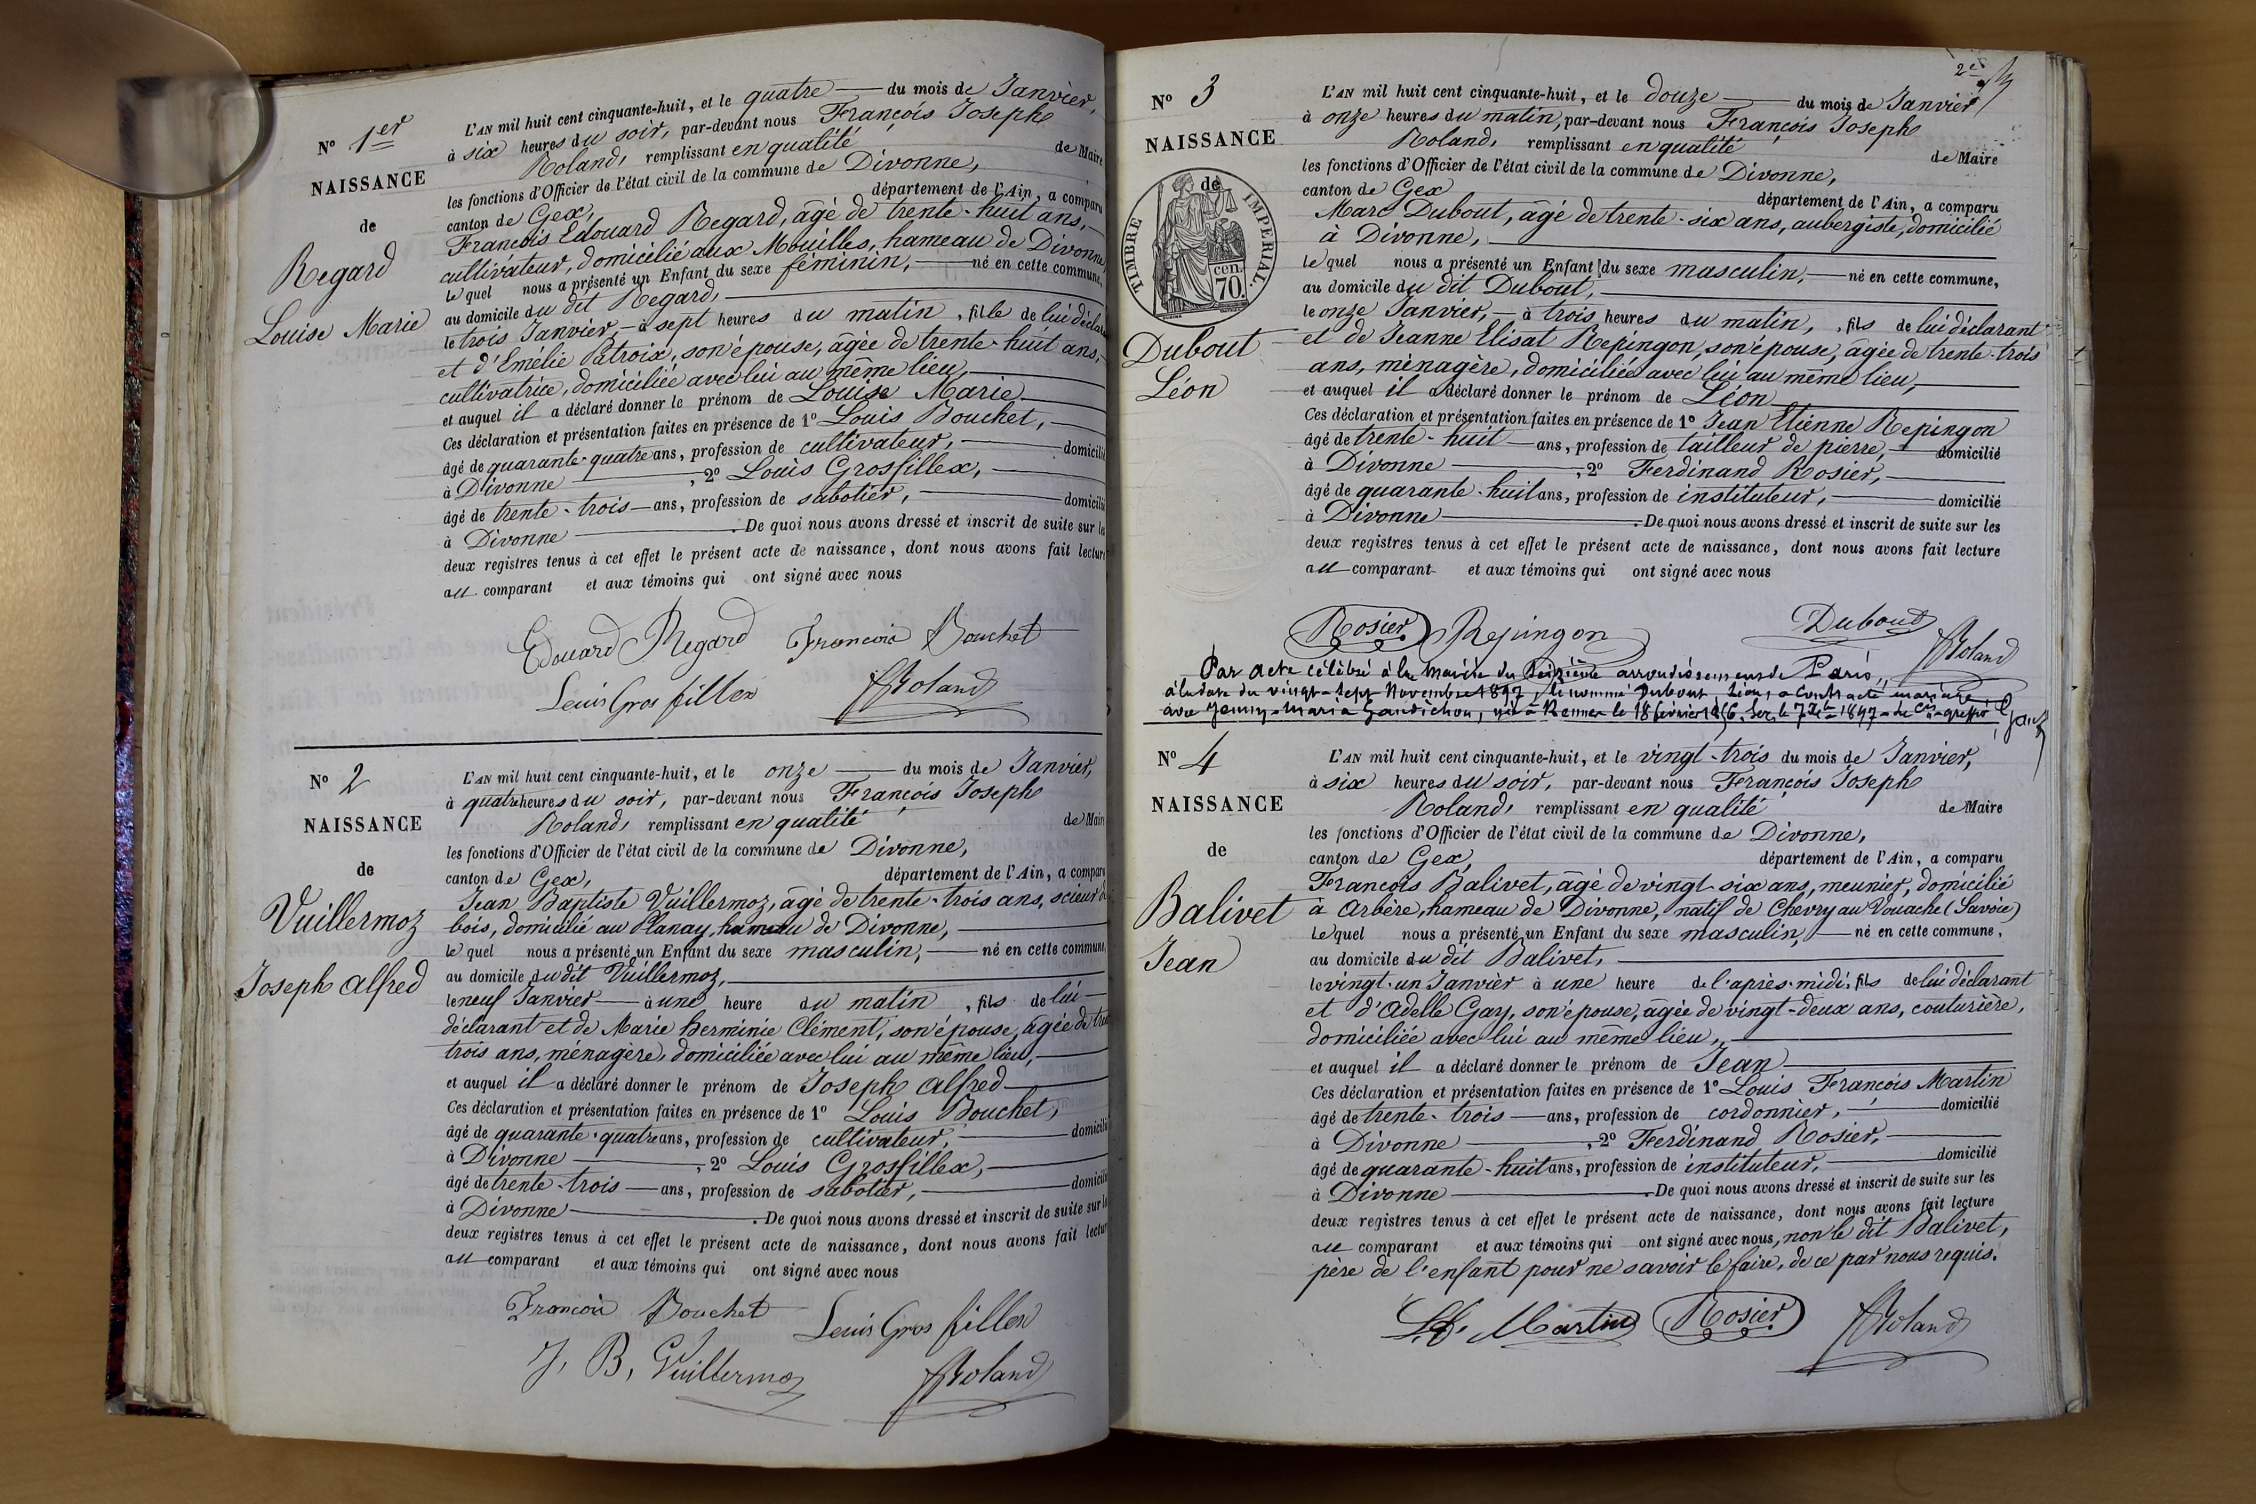 N° 1er
NAISSANCE
de
Regard
Louise Marie
L'AN mil huit cent cinquante-huit, et le quatre du mois de Janvier,
à six heures du soir, par-devant nous François Joseph
Roland, remplissant en qualité de Maire
les fonctions d'Officier de l'état civil de la commune de Divonne,
canton de Gex, département de l'Ain, a comparu
François Edouard Regard, âgé de trente-huit ans,
cultivateur, domicilié aux Mouilles, hameau de Divonne
lequel nous a présenté un Enfant du sexe féminin, né en cette commune,
au domicile du dit Regard,
le trois Janvier, à sept heures du matin, fille de lui déclarant
et d'Emélie Patroix, son épouse, âgée de trente-huit ans,
cultivatrice, domiciliée avec lui au même lieu,
et auquel il a déclaré donner le prénom de Louise Marie
Ces déclaration et présentation faites en présence de 1° Louis Bouchet,
âgé de quarante-quatre ans, profession de cultivateur, domicilié
à Divonne, 2° Louis Grosfillex,
âgé de trente-trois ans, profession de sabotier, domicilié
à Divonne. De quoi nous avons dressé et inscrit de suite sur les
deux registres tenus à cet effet le présent acte de naissance, dont nous avons fait lecture
au comparant et aux témoins qui ont signé avec nous
Edouard Regard François Bouchet
Louis Gros fillex FRoland
N° 2
NAISSANCE
de
Vuillermoz
Joseph Alfred
L'AN mil huit cent cinquante-huit, et le onze du mois de Janvier,
à quatre heures du soir, par-devant nous François Joseph
Roland, remplissant en qualité de Maire
les fonctions d'Officier de l'état civil de la commune de Divonne,
canton de Gex, département de l'Ain, a comparu
Jean Baptiste Vuillermoz, âgé de trente-trois ans, scieur de
bois, domicilié au Planay, hameau de Divonne,
lequel nous a présenté un Enfant du sexe masculin, né en cette commune,
au domicile du dit Vuillermoz,
le neuf Janvier à une heure du matin, fils de lui
déclarant et de Marie herminie Clément, son épouse, âgée de trente
trois ans, ménagère, domiciliée avec lui au même lieu,
et auquel il a déclaré donner le prénom de Joseph Alfred
Ces déclaration et présentation faites en présence de 1° Louis Bouchet,
âgé de quarante-quatre ans, profession de cultivateur, domicilié
à Divonne, 2° Louis Grosfillex,
âgé de trente-trois ans, profession de sabotier, domicilié
à Divonne. De quoi nous avons dressé et inscrit de suite sur les
deux registres tenus à cet effet le présent acte de naissance, dont nous avons fait lecture
au comparant et aux témoins qui ont signé avec nous
François Bouchet Louis Gros fillex
J. B. Vuillermoz FRoland
2e
N° 3
NAISSANCE
de
TIMBRE IMPERIAL.
70 cen.
Dubout
Léon
L'AN mil huit cent cinquante-huit, et le douze du mois de Janvier
à onze heures du matin, par-devant nous François Joseph
Roland, remplissant en qualité de Maire
les fonctions d'Officier de l'état civil de la commune de Divonne,
canton de Gex département de l'Ain, a comparu
Marc Dubout, âgé de trente-six ans, aubergiste, domicilié
à Divonne,
lequel nous a présenté un Enfant du sexe masculin, né en cette commune,
au domicile du dit Dubout,
le onze Janvier, à trois heures du matin, fils de lui déclarant
et de Jeanne Elisat Repingon, son épouse, âgée de trente-trois
ans, ménagère, domiciliée avec lui au même lieu,
et auquel il a déclaré donner le prénom de Léon
Ces déclaration et présentation faites en présence de 1° Jean Etienne Repingon
âgé de trente-huit ans, profession de tailleur de pierre, domicilié
à Divonne, 2° Ferdinand Rosier,
âgé de quarante-huit ans, profession de instituteur, domicilié
à Divonne. De quoi nous avons dressé et inscrit de suite sur les
deux registres tenus à cet effet le présent acte de naissance, dont nous avons fait lecture
au comparant et aux témoins qui ont signé avec nous
Rosier Repingon Dubout FRoland
Par acte célébré à la Mairie du Seizième arrondissement de Paris,
à la date du vingt-sept Novembre 1897, le nommé Dubout, Léon, a contracté mariage
avec Jenny-Maria Gandichou, née à Rennes le 18 février 1856. Gex, le 7 Xbre 1897
N° 4
NAISSANCE
de
Balivet
Jean
L'AN mil huit cent cinquante-huit, et le vingt-trois du mois de Janvier,
à six heures du soir, par-devant nous François Joseph
Roland, remplissant en qualité de Maire
les fonctions d'Officier de l'état civil de la commune de Divonne,
canton de Gex, département de l'Ain, a comparu
François Balivet, âgé de vingt-six ans, meunier, domicilié
à Arbère, hameau de Divonne, natif de Chevry au Vouache (Savoie)
Lequel nous a présenté un Enfant du sexe masculin, né en cette commune,
au domicile du dit Balivet,
le vingt-un Janvier à une heure de l'après-midi, fils de lui déclarant
et d'Adelle Gay, son épouse, âgée de vingt-deux ans, couturière,
domiciliée avec lui au même lieu,
et auquel il a déclaré donner le prénom de Jean
Ces déclaration et présentation faites en présence de 1° Louis François Martin
âgé de trente-trois ans, profession de cordonnier, domicilié
à Divonne, 2° Ferdinand Rosier,
âgé de quarante-huit ans, profession de instituteur, domicilié
à Divonne. De quoi nous avons dressé et inscrit de suite sur les
deux registres tenus à cet effet le présent acte de naissance, dont nous avons fait lecture
au comparant et aux témoins qui ont signé avec nous, non le dit Balivet,
père de l'enfant pour ne savoir le faire, de ce par nous requis.
L.f. Martin Rosier FRoland